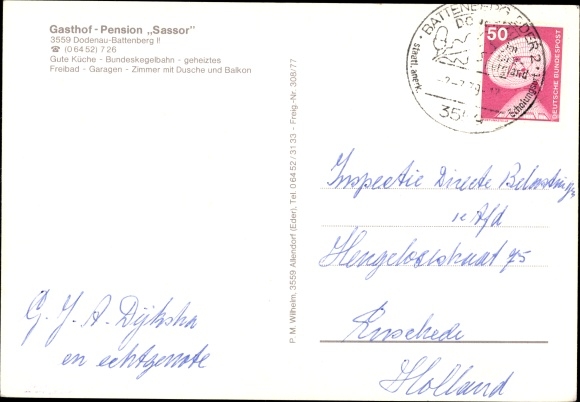 Gasthof - Pension „Sassor"
3559 Dodenau-Battenberg II
☎ (0 64 52) 7 26
Gute Küche - Bundeskegelbahn - geheiztes
Freibad - Garagen - Zimmer mit Dusche und Balkon
P. M. Wilhelm, 3559 Allendorf (Eder), Tel. 0 64 52 / 31 33 - Freig.-Nr. 308/77
BATTENBERG, EDER 2
staatl. anerk.
Erholungsort
50
DEUTSCHE BUNDESPOST
Inspectie Directe Belastingen
1e Afd
Hengelosestraat 75
Enschede
Holland
G. J. A. Dijkstra
en echtgenote